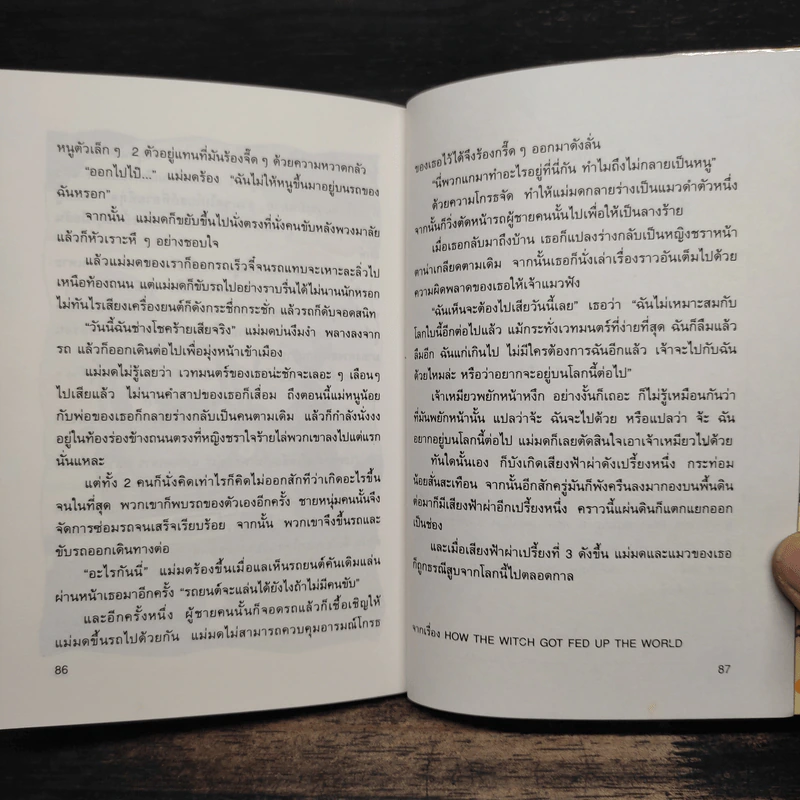 หนูตัวเล็ก ๆ 2 ตัวอยู่แทนที่มันร้องจี๊ด ๆ ด้วยความหวาดกลัว
"ออกไปไป๊..." แม่มดร้อง "ฉันไม่ให้หนูขึ้นมาอยู่บนรถของ
ฉันหรอก"
จากนั้น แม่มดก็ขยับขึ้นไปนั่งตรงที่นั่งคนขับหลังพวงมาลัย
แล้วก็หัวเราะหึ ๆ อย่างชอบใจ
แล้วแม่มดของเราก็ออกรถเร็วจี๋จนรถแทบจะเหาะละลิ่วไป
เหนือท้องถนน แต่แม่มดก็ขับรถไปอย่างราบรื่นได้ไม่นานนักหรอก
ไม่ทันไรเสียงเครื่องยนต์ก็ดังกระชึกกระชัก แล้วรถก็ดับจอดสนิท
"วันนี้ฉันช่างโชคร้ายเสียจริง" แม่มดบ่นงึมงำ พลางลงจาก
รถ แล้วก็ออกเดินต่อไปเพื่อมุ่งหน้าเข้าเมือง
แม่มดไม่รู้เลยว่า เวทมนตร์ของเธอน่ะชักจะเลอะ ๆ เลือน ๆ
ไปเสียแล้ว ไม่นานคำสาปของเธอก็เสื่อม ถึงตอนนี้แม่หนูน้อย
กับพ่อของเธอก็กลายร่างกลับเป็นคนตามเดิม แล้วก็กำลังนั่งงง
อยู่ในท้องร่องข้างถนนตรงที่หญิงชราใจร้ายไล่พวกเขาลงไปแต่แรก
นั่นแหละ
แต่ทั้ง 2 คนก็นั่งคิดเท่าไรก็คิดไม่ออกสักทีว่าเกิดอะไรขึ้น
จนในที่สุด พวกเขาก็พบรถของตัวเองอีกครั้ง ชายหนุ่มคนนั้นจึง
จัดการซ่อมรถจนเสร็จเรียบร้อย จากนั้น พวกเขาจึงขึ้นรถและ
ขับรถออกเดินทางต่อ
"อะไรกันนี่" แม่มดร้องขึ้นเมื่อแลเห็นรถยนต์คันเดิมแล่น
ผ่านหน้าเธอมาอีกครั้ง "รถยนต์จะแล่นได้ยังไงถ้าไม่มีคนขับ"
และอีกครั้งหนึ่ง ผู้ชายคนนั้นก็จอดรถแล้วก็เชื้อเชิญให้
แม่มดขึ้นรถไปด้วยกัน แม่มดไม่สามารถควบคุมอารมณ์โกรธ
86
ของเธอไว้ได้จึงร้องกรี๊ด ๆ ออกมาดังลั่น
"นี่พวกแกมาทำอะไรอยู่ที่นี่กัน ทำไมถึงไม่กลายเป็นหนู"
ด้วยความโกรธจัด ทำให้แม่มดกลายร่างเป็นแมวดำตัวหนึ่ง
จากนั้นก็วิ่งตัดหน้ารถผู้ชายคนนั้นไปเพื่อให้เป็นลางร้าย
เมื่อเธอกลับมาถึงบ้าน เธอก็แปลงร่างกลับเป็นหญิงชราหน้า
ตาน่าเกลียดตามเดิม จากนั้นเธอก็นั่งเล่าเรื่องราวอันเต็มไปด้วย
ความผิดพลาดของเธอให้เจ้าแมวฟัง
"ฉันเห็นจะต้องไปเสียวันนี้เลย" เธอว่า "ฉันไม่เหมาะสมกับ
โลกใบนี้อีกต่อไปแล้ว แม้กระทั่งเวทมนตร์ที่ง่ายที่สุด ฉันก็ลืมแล้ว
ลืมอีก ฉันแก่เกินไป ไม่มีใครต้องการฉันอีกแล้ว เจ้าจะไปกับฉัน
ด้วยไหมล่ะ หรือว่าอยากจะอยู่บนโลกนี้ต่อไป"
เจ้าเหมียวพยักหน้าหงึก อย่างงั้นก็เถอะ ก็ไม่รู้เหมือนกันว่า
ที่มันพยักหน้านั้น แปลว่าจ้ะ ฉันจะไปด้วย หรือแปลว่า จ้ะ ฉัน
อยากอยู่บนโลกนี้ต่อไป แม่มดก็เลยตัดสินใจเอาเจ้าเหมียวไปด้วย
ทันใดนั้นเอง ก็บังเกิดเสียงฟ้าผ่าดังเปรี้ยงหนึ่ง กระท่อม
น้อยสั่นสะเทือน จากนั้นอีกสักครู่มันก็พังครืนลงมากองบนพื้นดิน
ต่อมาก็มีเสียงฟ้าผ่าอีกเปรี้ยงหนึ่ง คราวนี้แผ่นดินก็แตกแยกออก
เป็นช่อง
และเมื่อเสียงฟ้าผ่าเปรี้ยงที่ 3 ดังขึ้น แม่มดและแมวของเธอ
ก็ถูกธรณีสูบจากโลกนี้ไปตลอดกาล
จากเรื่อง HOW THE WITCH GOT FED UP THE WORLD
87